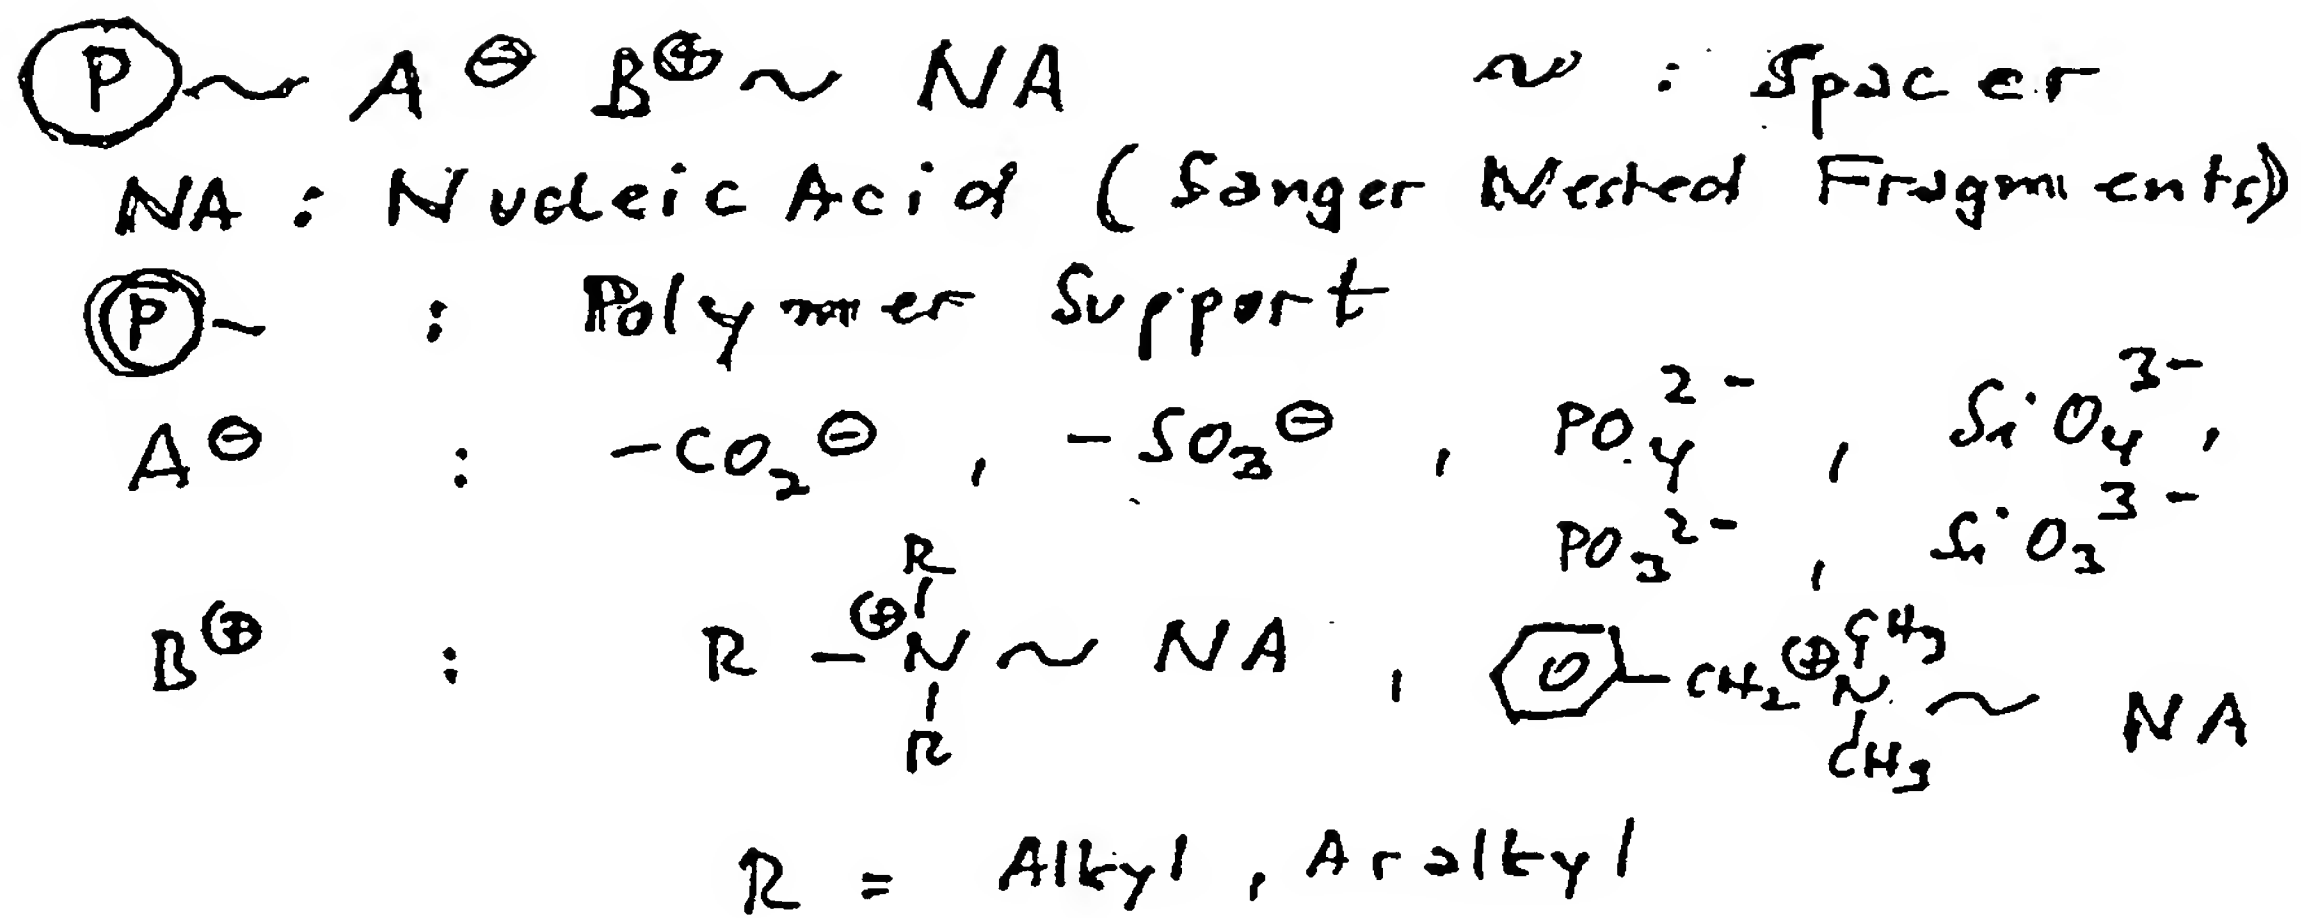 Ⓟ~ A⊖ B⊕ ~ NA ~ : Spacer
NA : Nucleic Acid (Sanger Nested Fragments)
Ⓟ~ : Polymer Support
A⊖ : -CO₂⊖, -SO₃⊖, PO₄²⁻, SiO₄³⁻,
PO₃²⁻, SiO₃³⁻
R
B⊕ : R -⊕N ~ NA, -CH₂⊕N ~ NA
CH₃
R
CH₃
R = Alkyl, Aralkyl